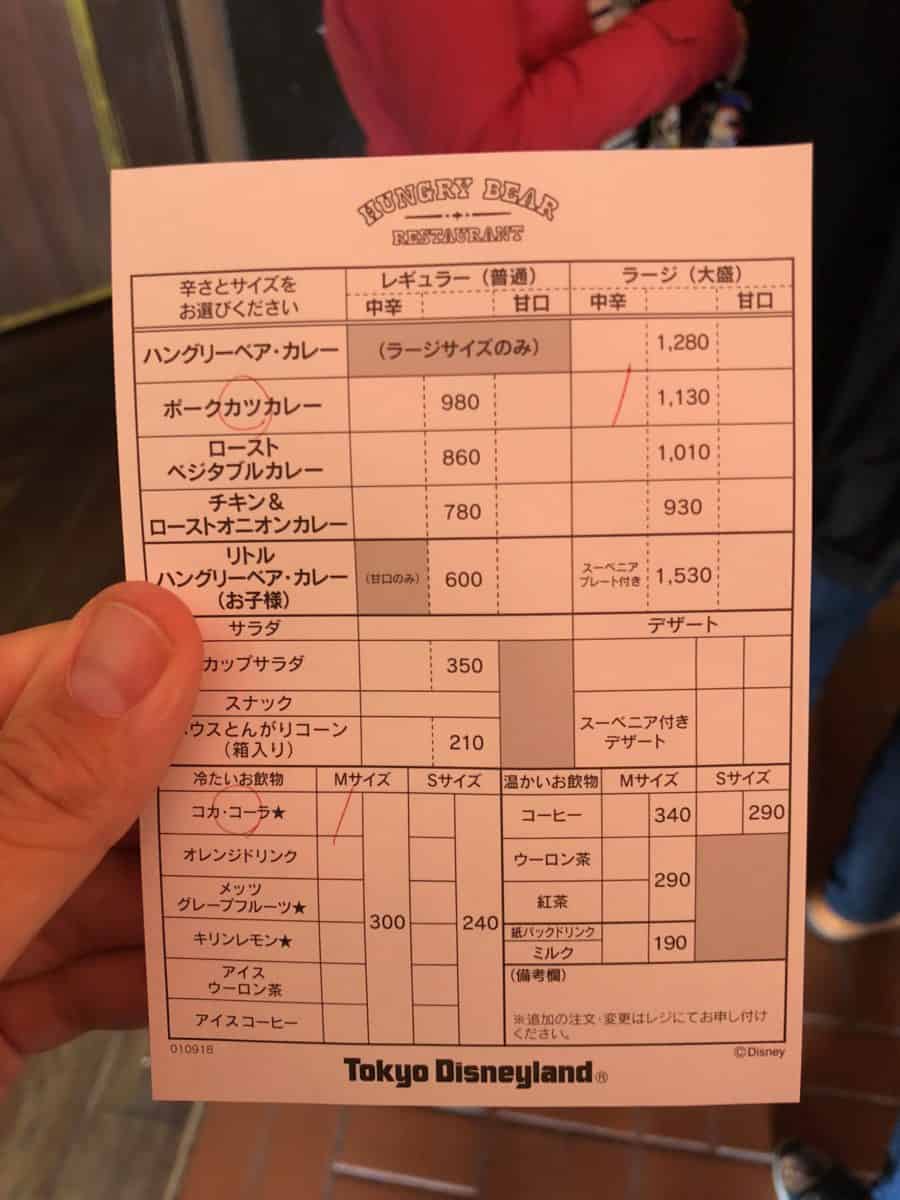 HUNGRY BEAR
RESTAURANT
辛さとサイズを
お選びください
レギュラー（普通）
ラージ（大盛）
中辛 甘口 中辛 甘口
ハングリーベア・カレー （ラージサイズのみ） 1,280
ポークカツカレー 980 1,130
ロースト
ベジタブルカレー 860 1,010
チキン＆
ローストオニオンカレー 780 930
リトル
ハングリーベア・カレー
（お子様） （甘口のみ） 600
スーベニア
プレート付き 1,530
サラダ デザート
カップサラダ 350
スナック
ウスとんがりコーン
（箱入り） 210
スーベニア付き
デザート
冷たいお飲物 Mサイズ Sサイズ 温かいお飲物 Mサイズ Sサイズ
コカ・コーラ★ コーヒー 340 290
オレンジドリンク ウーロン茶
メッツ
グレープフルーツ★ 紅茶 290
キリンレモン★ 300 240 紙パックドリンク
ミルク 190
アイス
ウーロン茶
アイスコーヒー
（備考欄）
※追加の注文・変更はレジにてお申し付け
ください。
010918 ©Disney
Tokyo Disneyland®